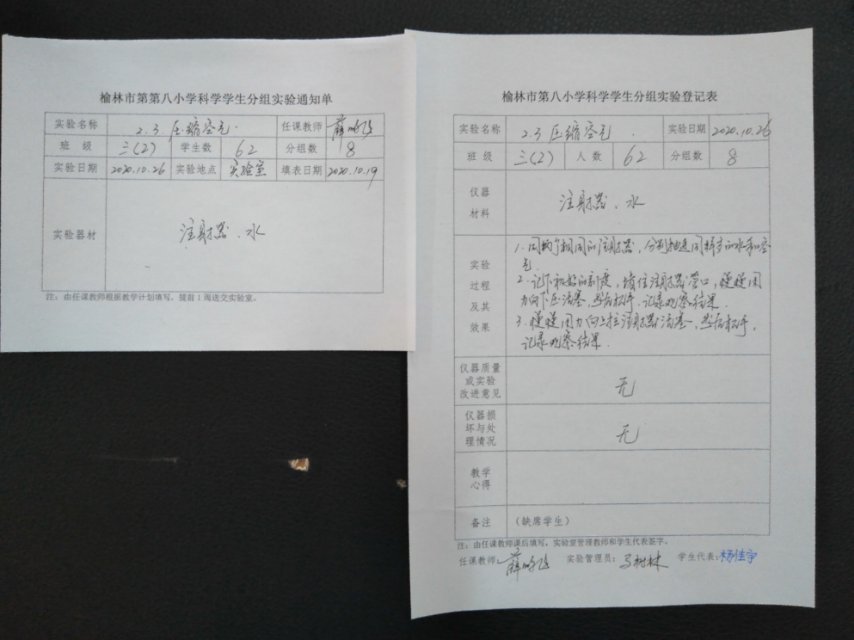 榆林市第第八小学科学学生分组实验通知单
实验名称 2.3.压缩空气. 任课教师
班级 三(2) 学生数 62 分组数 8
实验日期 2020.10.26 实验地点 实验室 填表日期 2020.10.19
实验器材 注射器、水
注：由任课教师根据教学计划填写，提前1周送交实验室。
榆林市第八小学科学学生分组实验登记表
实验名称 2.3 压缩空气. 实验日期 2020.10.26
班级 三(2) 人数 62 分组数 8
仪器
材料
注射器、水
实验
过程
及其
效果
1.用两个相同的注射器，分别抽进同样多的水和空
气.
2.记下初始的刻度，堵住注射器管口，慢慢用
力向下压活塞，然后松手，记录观察结果.
3.慢慢用力向上拉注射器活塞，然后松手，
记录观察结果.
仪器质量
或实验
改进意见
无
仪器损
坏与处
理情况
无
教学
心得
备注 （缺席学生）
注：由任课教师课后填写，实验室管理教师和学生代表签字。
任课教师: 实验管理员: 马树林 学生代表: 杨佳宇